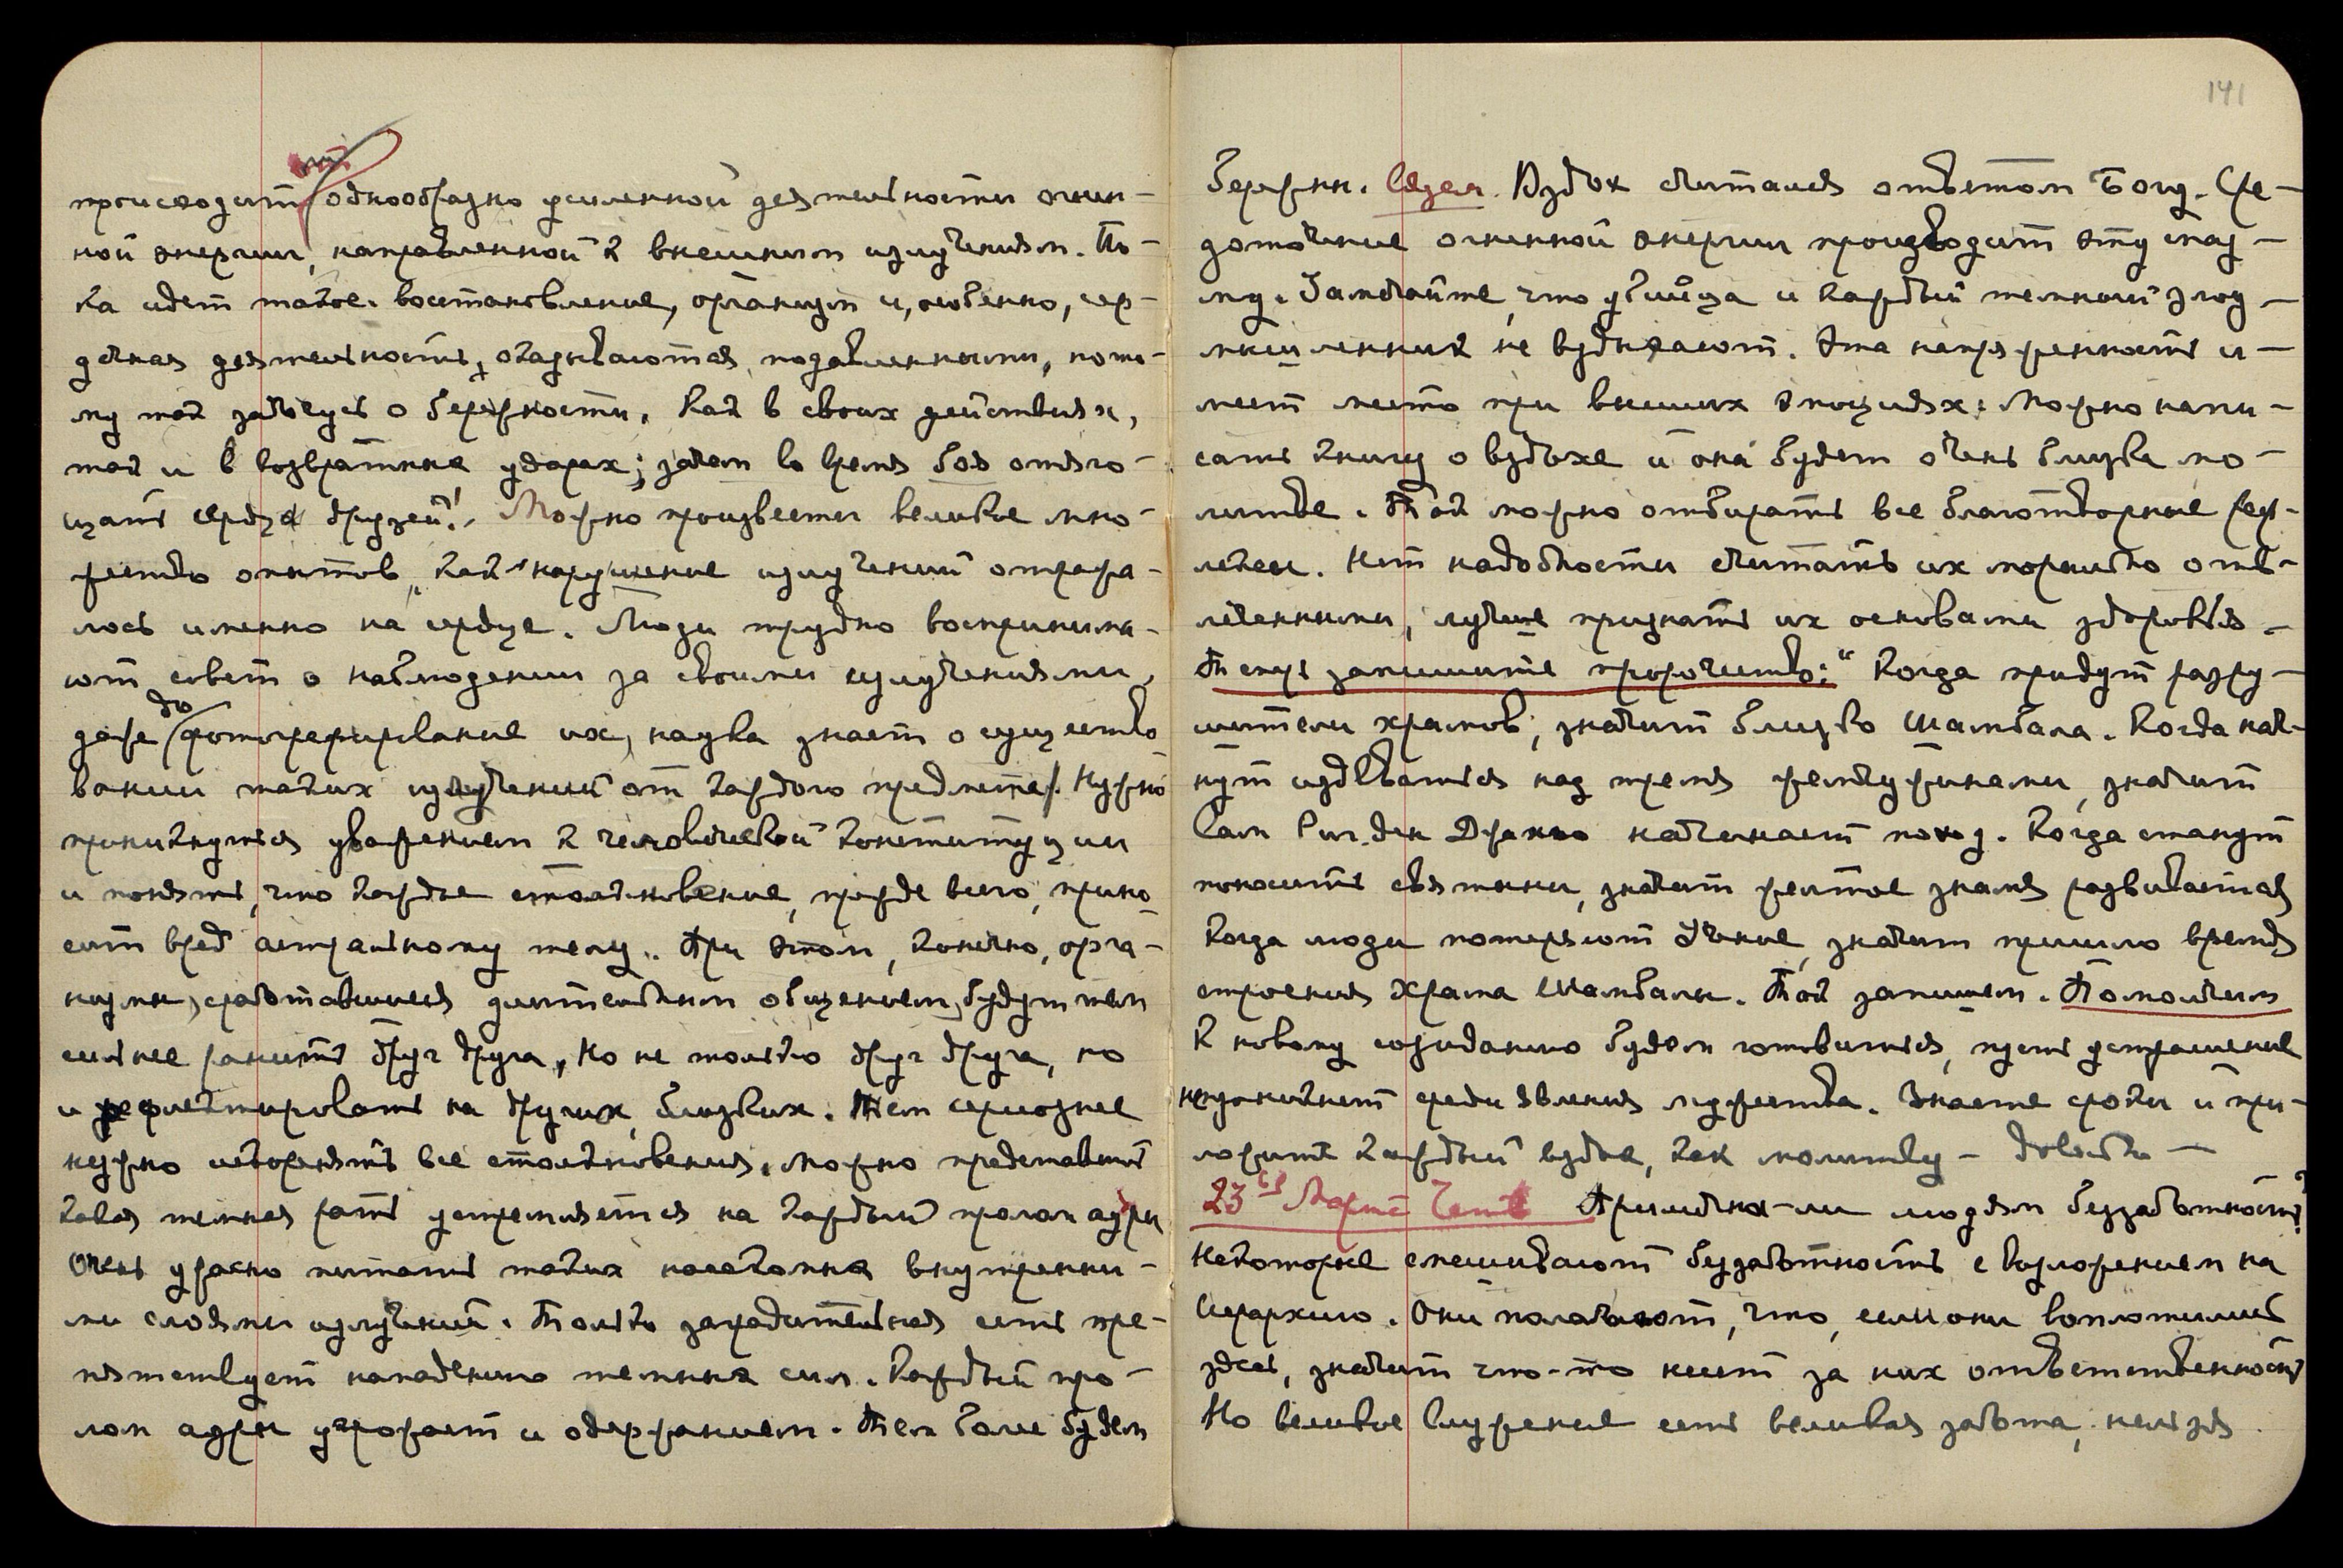 происходит от однообразно усиленной деятельности огнен-
ной энергии, направленной к внешним излучениям. По-
ка идет такое восстановление, организм и, особенно, сер-
дечная деятельность, оказываются подавленными, пото-
му так забочусь о бережности, как в своих действиях,
так и в возвратных ударах; затем во время боя отяго-
щать сердца друзей! Можно произвести великое мно-
жество опытов, как нарушение излучений отража-
лось именно на сердце. Люди трудно воспринима-
ют совет о наблюдении за своими излучениями,
даже до фотографирование их, наука знает о существо-
вании таких излучений от каждого предмета. Нужно
проникнуться уважением к человеческой конституции
и понять, что каждое столкновение, прежде всего, прино-
сит вред астральному телу. При этом, конечно, орга-
низмы, сработавшиеся длительным общением, будут тем
сильнее ранить друг друга, но не только друг друга, но
и рефлектировать на других, близких. Тем серьезнее
нужно искоренять все столкновения, можно представить
какая темная рать устремляется на каждый пролом ауры
Очень ужасно питать таких насекомых внутренни-
ми слоями излучений. Только заградительная сеть пре-
пятствует нападению темных сил. Каждый про-
лом ауры угрожает и одержанием. Тем более будем
141
бережны. Сазея. Вздох считался ответом Богу. Сре-
доточие огненной энергии производит эту спаз-
му. Замечайте, что убийца и каждый темный злоу-
мышленник не вздыхают. Эта напряженность и-
меет место при высших эмоциях. Можно напи-
сать книгу о вздохе и она будет очень близка мо-
литве. Так можно отбирать все благотворные реф-
лексы. Нет надобности считать их морально отв-
леченными, лучше признать их основами здоровья.
Теперь запишите пророчество: "Когда придут разру-
шители храмов, значит близко Шамбала. Когда нач-
нут издеваться над тремя жемчужинами, значит
Сам Ригден Джапо начинает поход. Когда станут
поносить святыни, значит желтое знамя развивается
Когда люди потеряют Учение, значит пришло время
строения Храма Шамбалы. Так запишем. Помолчим
К новому созиданию будем готовиться, пусть устрашение
не проникнет среди явления мужества. Знаете сроки и при-
ложите каждый вздох, как молитву – Довольно –
23ье Марта Четв Прилична-ли людям беззаботность?
Некоторые смешивают беззаботность с возложением на
Иерархию. Они полагают, что, если они воплотились
здесь, значит кто-то несет за них ответственность
Но великое Служение есть великая забота, нельзя